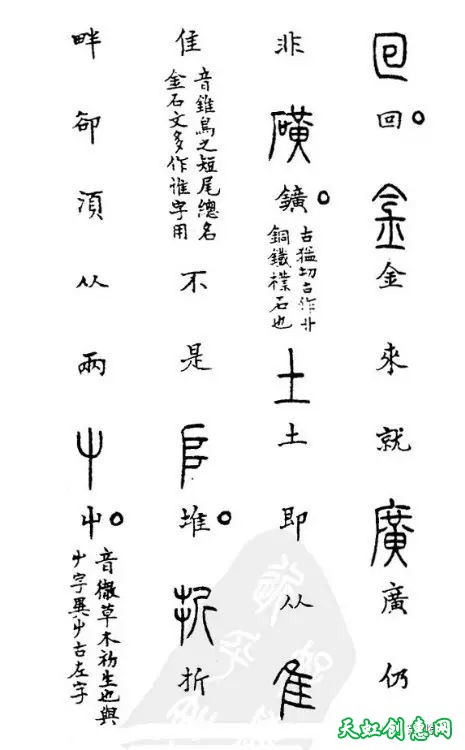 回回。金金來就廣廣仍
非磺鑛。
古猛切古作卝
銅鐵樸石也
土土即从隹
隹
音錐鳥之短尾總名
金石文多作惟字用
不是𠂤堆。折折
畔卻須从兩屮屮。
音徹草木初生也與
屮字異屮古左字
天虹创意网